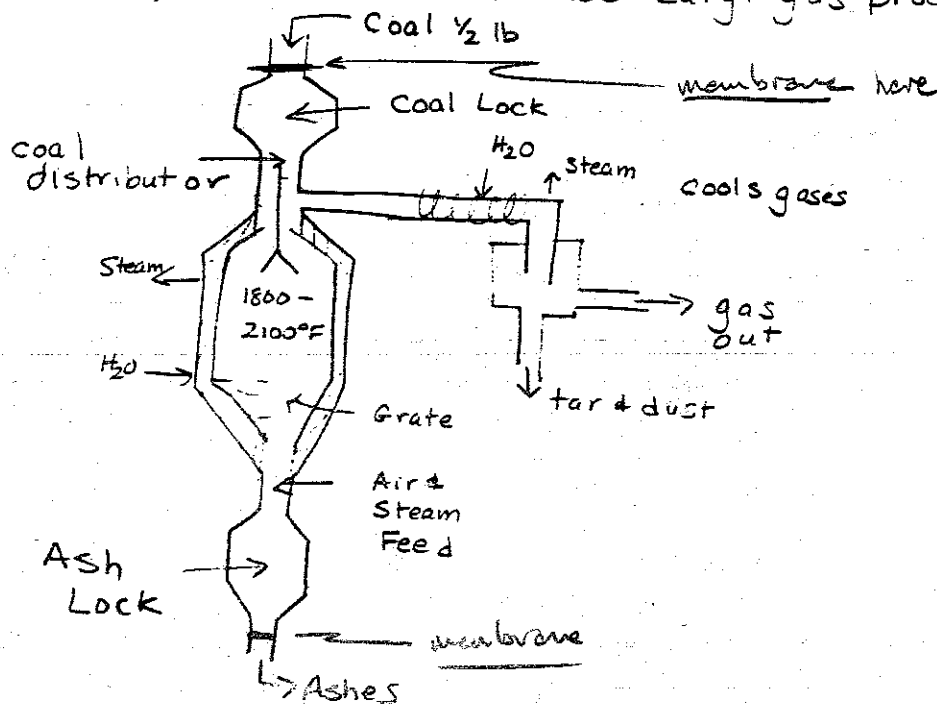 Lurgi gas
Coal ½ lb
membrane here
Coal Lock
coal
distributor
H₂O
Steam
cools gases
Steam
1800 -
2100°F
gas
out
H₂O
tar & dust
Grate
Air &
Steam
Feed
Ash
Lock
membrane
Ashes